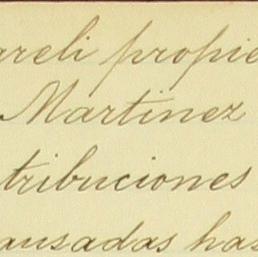 areli propie
Martinez
tribuciones
ausadas has